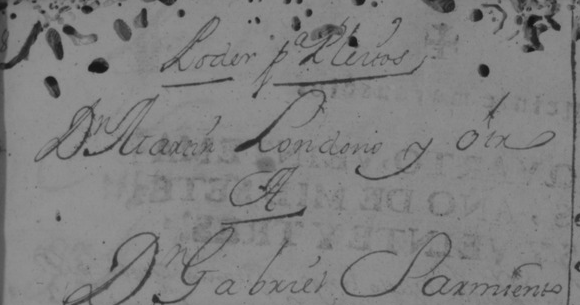 Poder pª Pleitos
Dn Martin Londoño y otr
A
Dn Gabriel Sarmiento